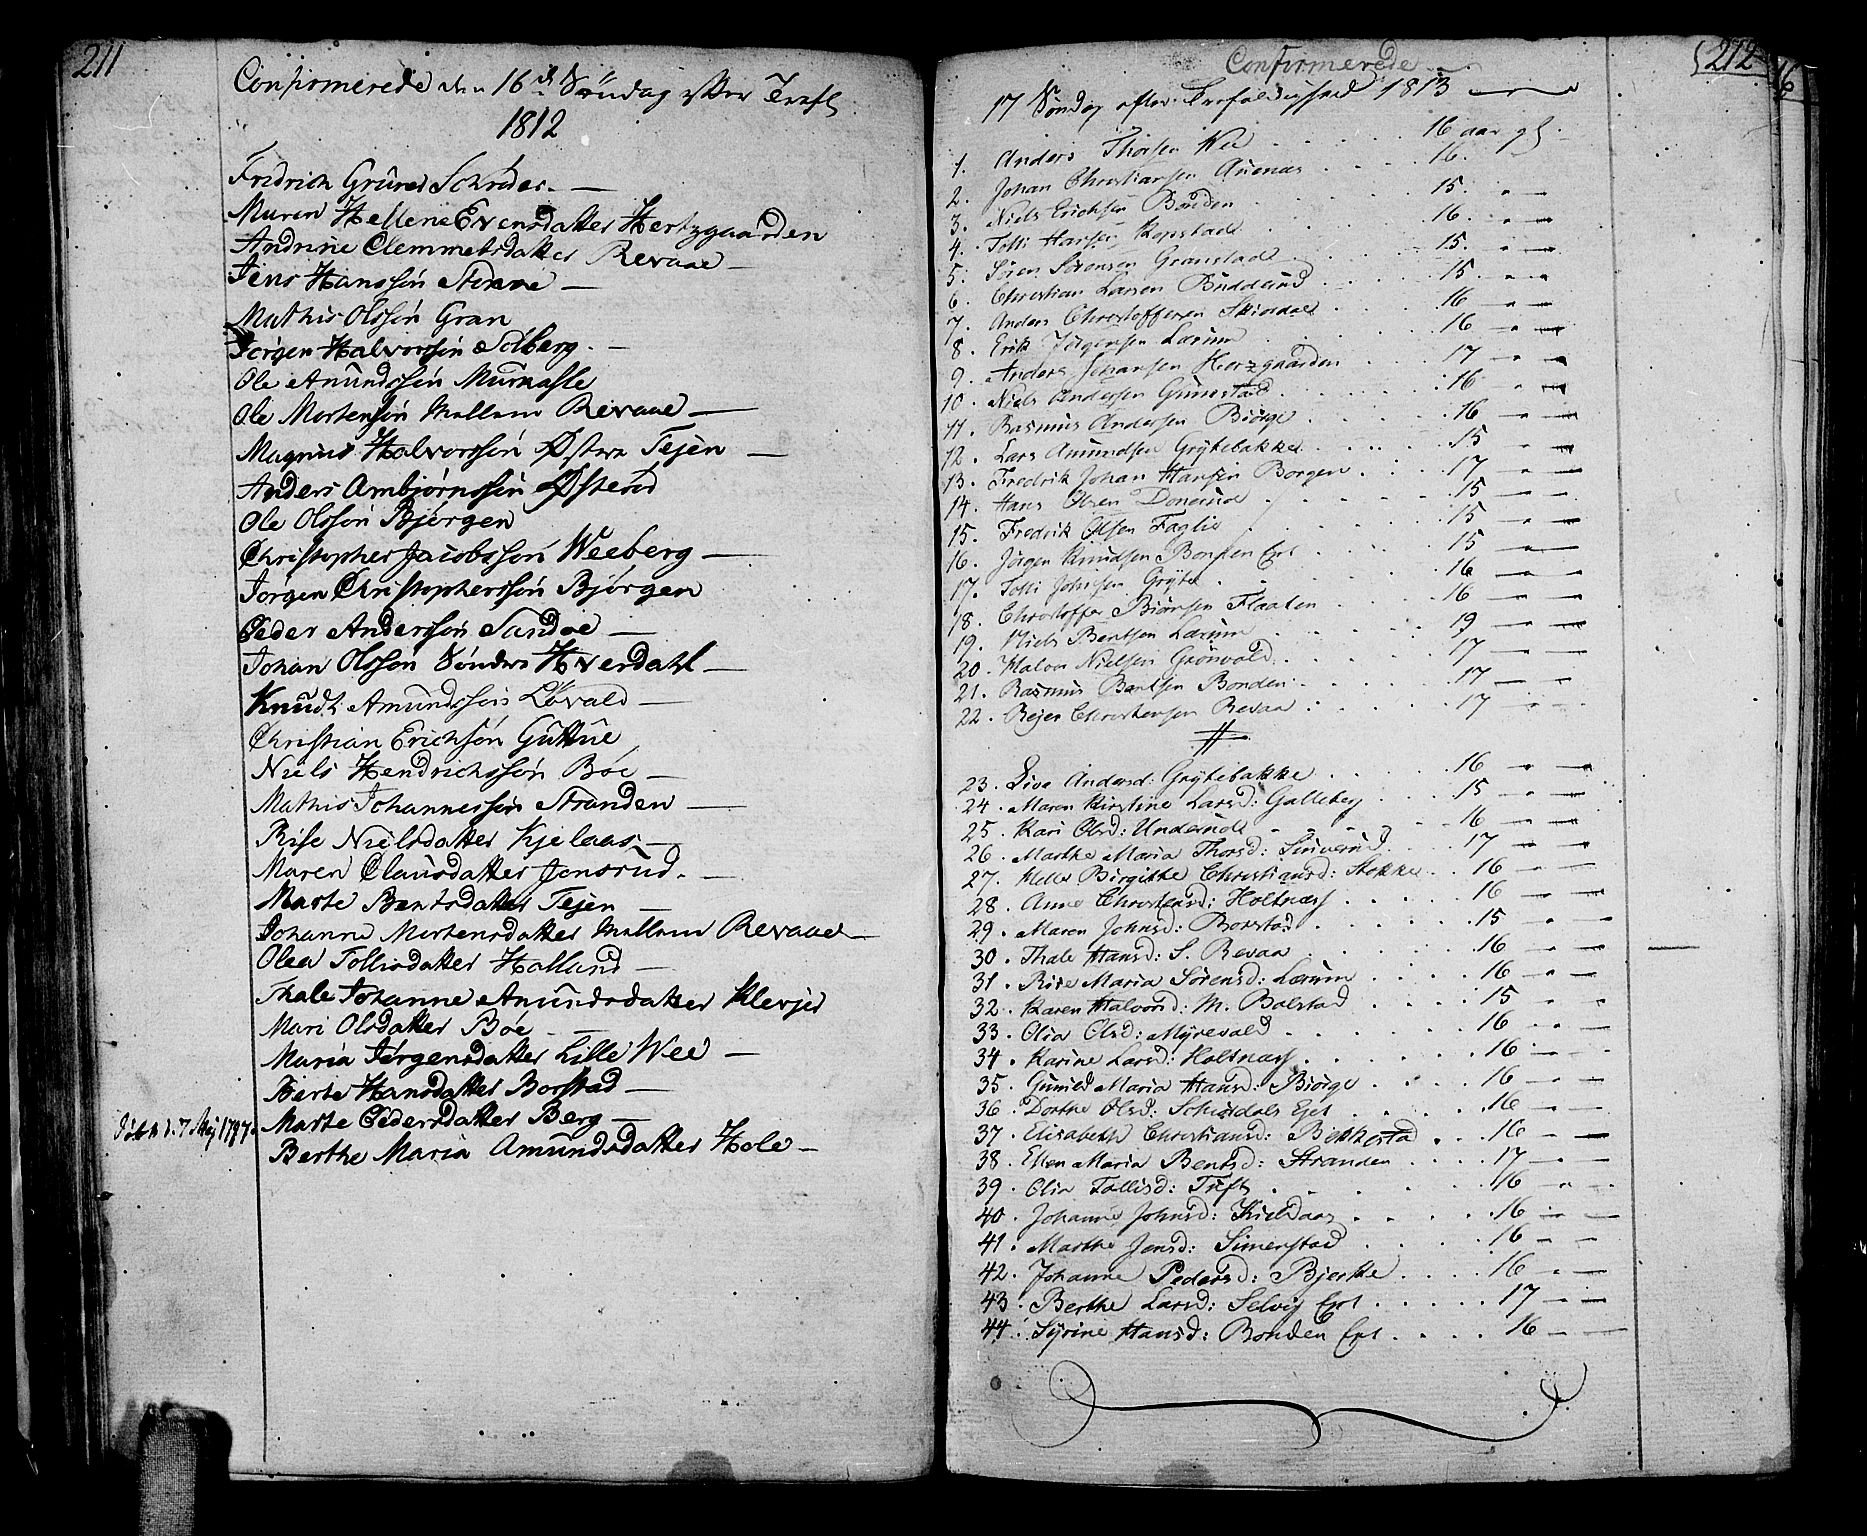 211
Confirmerede den 16de Söndag efter Treft
1812
Fridrich Grüner Schröder. —
Maren Hellene Evensdatter Hertzgaarden
Andrine Clemmetsdatter Revaae —
Jens Hansson —
Mathis Olsson Gran
Jørgen Halvorsson Solberg. —
Ole Amundsson Murnasle
Ole Mortensson Mellem Revaae —
Magnus Halvorsson Østere Tejen —
Anders Ambjørnsson Østerud
Ole Olsson Bjørgen
Christopher Jacobsson Weeberg —
Jørgen Christophersson Bjørgen
Peder Andersson Sandoe —
Johan Olsson Sönders Hverdahl —
Knudt Amundsson Lövald —
Christian Erichsön Guttue
Niels Hendrichssön Böe —
Mathis Johannesson Stranden —
Rise Nielsdatter Kjelaas —
Maren Clausdatter Jonsrud. —
Marte Bentsdatter Tejen —
Johanne Mortensdatter Mellem Revaae —
Olea Tollisdatter Holland —
Thale Johanne Amundsdatter Klevjer
Mari Olsdatter Böe —
Maria Jørgensdatter Lille Wee —
Berte Hansdatter Borstad —
Marte Pedersdatter Berg —
d. 7 Maj 1797. Berthe Maria Amundsdatter Hole —
212
16
Confirmerede
17 Söndag efter Trefoldighed 1813
1. Anders Thorsen Wee . . . . 16 aar gl.
2. Johan Christiansen Auenas . . . . 16.
3. Niels Erichsen Bonden . . . . 15. " —
4. Tolli Hansen Kopstad . . . . 16. " —
5. Sören Sörensen Granstad . . . . 15. " —
6. Christian Larsen Budderud . . . . 15 " "
7. Anders Christoffersen Skindal . . . . 16 " —
8. Erik Jörgensen Lærum . . . . 16 — " —
9. Anders Johansen Herzgaarden . . . . 17 — " —
10. Niels Andersen Gunestad . . . . 16 " —
11. Rasmus Andersen Biörge . . . . 16 — " —
12. Lars Amundsen Grytebakke . . . . 15 " —
13. Fredrik Johan Hansen Borgen . . . . 17 — " —
14. Hans Olsen Donerud . . . . 15 — —
15. Fredrik Olsen Faglie . . . . 15 — " —
16. Jörgen Knudsen Bonden Ejet . . . . 15 — —
17. Tolli Johnsen Gryte . . . . 16 — " —
18. Christoffer Biörnsen Flaaten . . . . 16 — " —
19. Niels Bentsen Lærum . . . . 19 — " —
20. Halvor Nielsen Grönvold . . . . 17 — " —
21. Rasmus Bentsen Bonden . . . . 17 — —
22. Rejer Christensen Revaa . . . . 17
23. Live Andersd: Grytebakke . . . . 16 " —
24. Maren Kirstine Larsd: Galleberg . . . . 15 " —
25. Kari Olsd: Underud . . . . 16 — " —
26. Marthe Maria Thorsd: . . . . 17 — " —
27. Helle Birgitte Christiansd: Stokke . . 16 " —
28. Anne Christensd: Holtnæs . . . . 16 " —
29. Maren Johnsd: Borstad . . . . 15 " —
30. Thale Hansd: S. Revaa . . . . 16 — " —
31. Rise Maria Sörensd: Lærum . . . . 16 — " —
32. Karen Halvorsd: M. Bolstad . . . . 15 " "
33. Olia Olsd: Myrevold . . . . 16 — " —
34. Karine Larsd: Holtnæs . . . . 16 — " —
35. Gunild Maria Hansd: Biörge . . . . 16 — " —
36. Dorthe Olsd: Schirdals Ejet . . . . 16 — " —
37. Elisabeth Christiansd: Bekkestad . . . 16 — " —
38. Ellen Maria Bentsd: Stranden . . . . 17 — " —
39. Olia Tollisd: Tuft . . . . 16 " —
40. Johanne Johnsd: Kieldaas . . . . 16 — " —
41. Marthe Jensd: Simenstad . . . . 16 — " —
42. Johanne Pedersd: Bjerke . . . . 16 " —
43. Berthe Larsd: Selvig Ejet . . . . 17 — " —
44. Syrine Hansd: Bonden Ejet . . . . 16 — " —